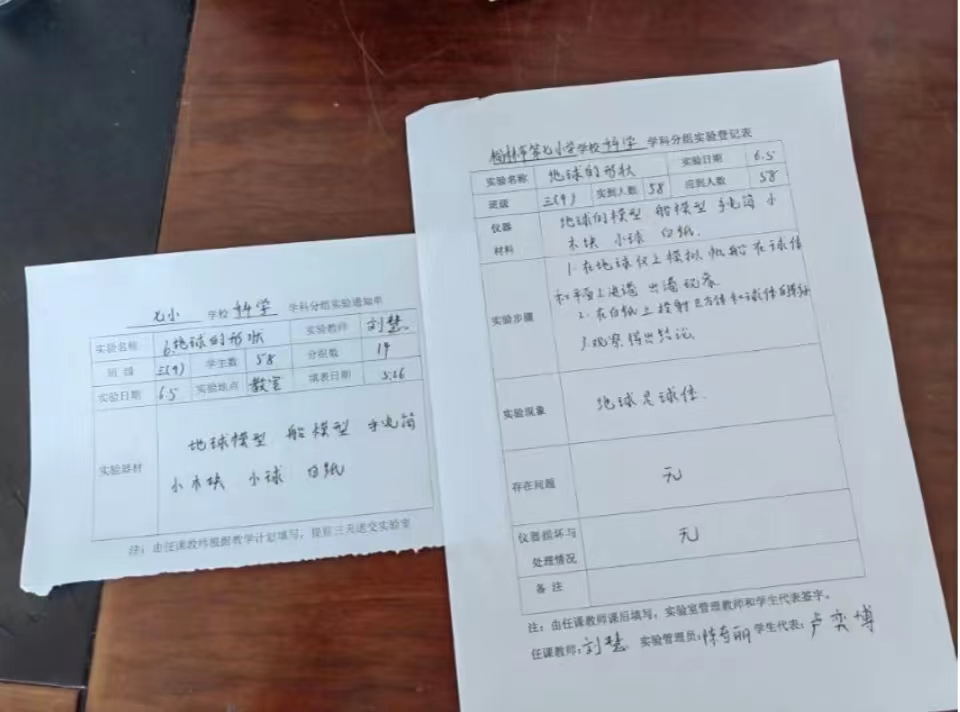 七小 学校 科学 学科分组实验通知单
实验名称 6.地球的形状 实验教师 刘慧
班级 三(4) 学生数 58 分组数 14
实验日期 6.5 实验地点 教室 填表日期 5.26
实验器材 地球模型 船模型 手电筒
小木块 小球 白纸
注：由任课教师根据教学计划填写，提前三天送交实验室
榆林市第七小学学校 科学 学科分组实验登记表
实验名称 地球的形状 实验日期 6.5
班级 三(4) 实到人数 58 应到人数 58
仪器材料 地球的模型 船模型 手电筒 小
木块 小球 白纸.
实验步骤 1.在地球仪上模拟帆船在球体
和平面上进港 出港现象
2.在白纸上投射正方体和球体的
3.观察得出结论.
实验现象 地球是球体.
存在问题 无
仪器损坏与处理情况 无
备注
注：由任课教师课后填写，实验室管理教师和学生代表签字。
任课教师：刘慧 实验管理员： 学生代表：卢奕博